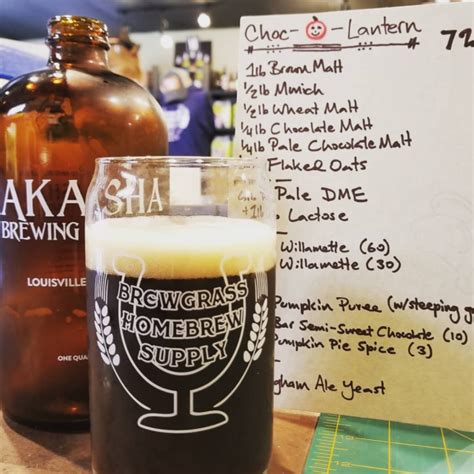 Choc-O-Lantern
72
1lb Brown Malt
1/2 lb Munich
1/2 lb Wheat Malt
1/4 lb Chocolate Malt
1/4 lb Pale Chocolate Malt
Flaked Oats
Pale DME
Lactose
Willamette (60)
Willamette (30)
Pumpkin Puree (w/steeping
Bar Semi-Sweet Chocolate (10)
Pumpkin Pie Spice (3)
gham Ale Yeast
AKASHA
BREWING
LOUISVILLE
ONE QUA
BREWGRASS
HOMEBREW
SUPPLY